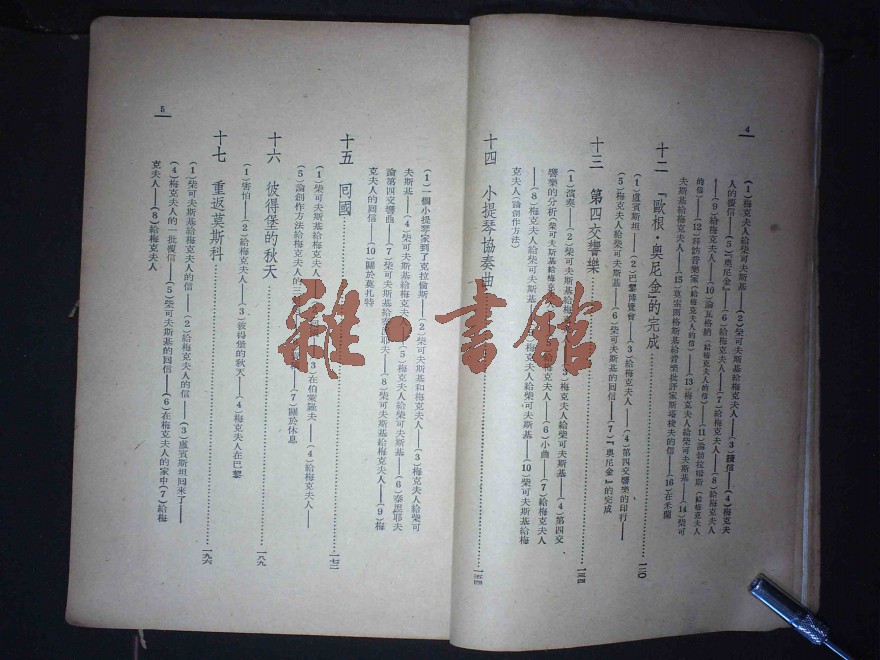 4
(1)梅克夫人給柴可夫斯基——(2)柴可夫斯基給梅克夫人——(3)續信——(4)梅克夫
人的覆信——(5)『奧尼金』——(6)柴可夫斯基給梅克夫人——(7)給梅克夫人——(8)給梅克夫人
——(9)給梅克夫人——(10)論瓦格納(給梅克夫人的信)——(11)論勃拉姆斯(給梅克夫人
的信)——(12)拜訪音樂家(給梅克夫人的信)——(13)梅克夫人給柴可夫斯基——(14)柴可
夫斯基給梅克夫人——(15)莫索爾格斯基給音樂批評家斯塔梭夫的信——(16)在米蘭
十二 『歐根·奧尼金』的完成 一二〇
(1)盧賓斯坦——(2)巴黎博覽會——(3)給梅克夫人——(4)第四交響樂的印行——
(5)梅克夫人給柴可夫斯基——(6)柴可夫斯基的回信——(7)『奧尼金』的完成
十三 第四交響樂 一三四
(1)演奏——(2)柴可夫斯基給梅克夫人——(3)梅克夫人給柴可夫斯基——(4)第四交
響樂的分析(柴可夫斯基給梅克 給梅克夫人——(6)小曲——(7)給梅克夫人
——(8)梅克夫人給柴可夫斯基 梅克夫人給柴可夫斯基——(10)柴可夫斯基給梅
克夫人(論創作方法)
十四 小提琴協奏曲 一五四
(1)一個小提琴家到了克拉倫斯——(2)柴可夫斯基和梅克夫人——(3)梅克夫人給柴可
夫斯基——(4)柴可夫斯基給梅克夫人——(5)梅克夫人給柴可夫斯基——(6)泰湼耶夫
論第四交響曲——(7)柴可夫斯基給泰湼耶夫——(8)柴可夫斯基給梅克夫人——(9)梅
克夫人的回信——(10)關於莫扎特
十五 囘國 一七二
(1)柴可夫斯基給梅克夫人 (3)在伯蒙羅夫——(4)給梅克夫人——
(5)論創作方法給梅克夫人的三 ——(7)關於休息
十六 彼得堡的秋天 一八九
(1)害怕——(2)給梅克夫人——(3)彼得堡的秋天——(4)梅克夫人在巴黎
十七 重返莫斯科 一九六
(1)柴可夫斯基給梅克夫人的信——(2)給梅克夫人的信——(3)盧賓斯坦回來了——
(4)梅克夫人的一批覆信——(5)柴可夫斯基的回信——(6)在梅克夫人的家中(7)給梅
克夫人——(8)給梅克夫人
5
雜·書館